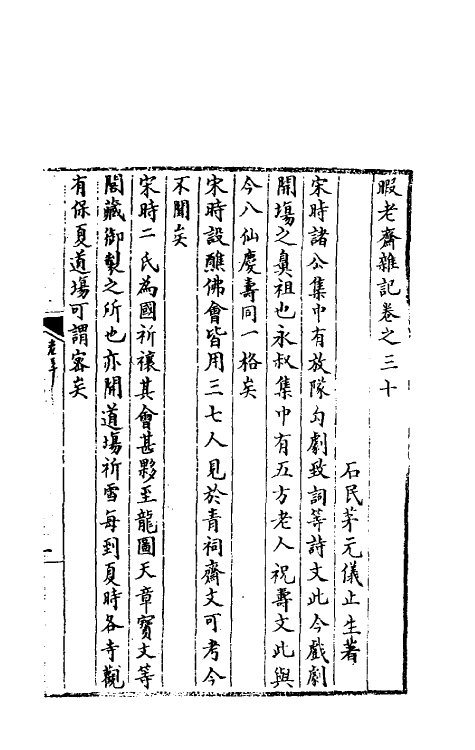 暇老齋雜記卷之三十
石民茅元儀止生著
宋時諸公集中有放隊勾劇致詞等詩文此今戲劇
開塲之鼻祖也永叔集中有五方老人祝壽文此與
今八仙慶壽同一格矣
宋時設醮佛會皆用三七人見於青祠齋文可考今
不聞矣
宋時二氏為國祈禳其會甚夥至龍圖天章寶文等
閣藏御製之所也亦開道塲祈雪每到夏時各寺觀
有保夏道塲可謂密矣